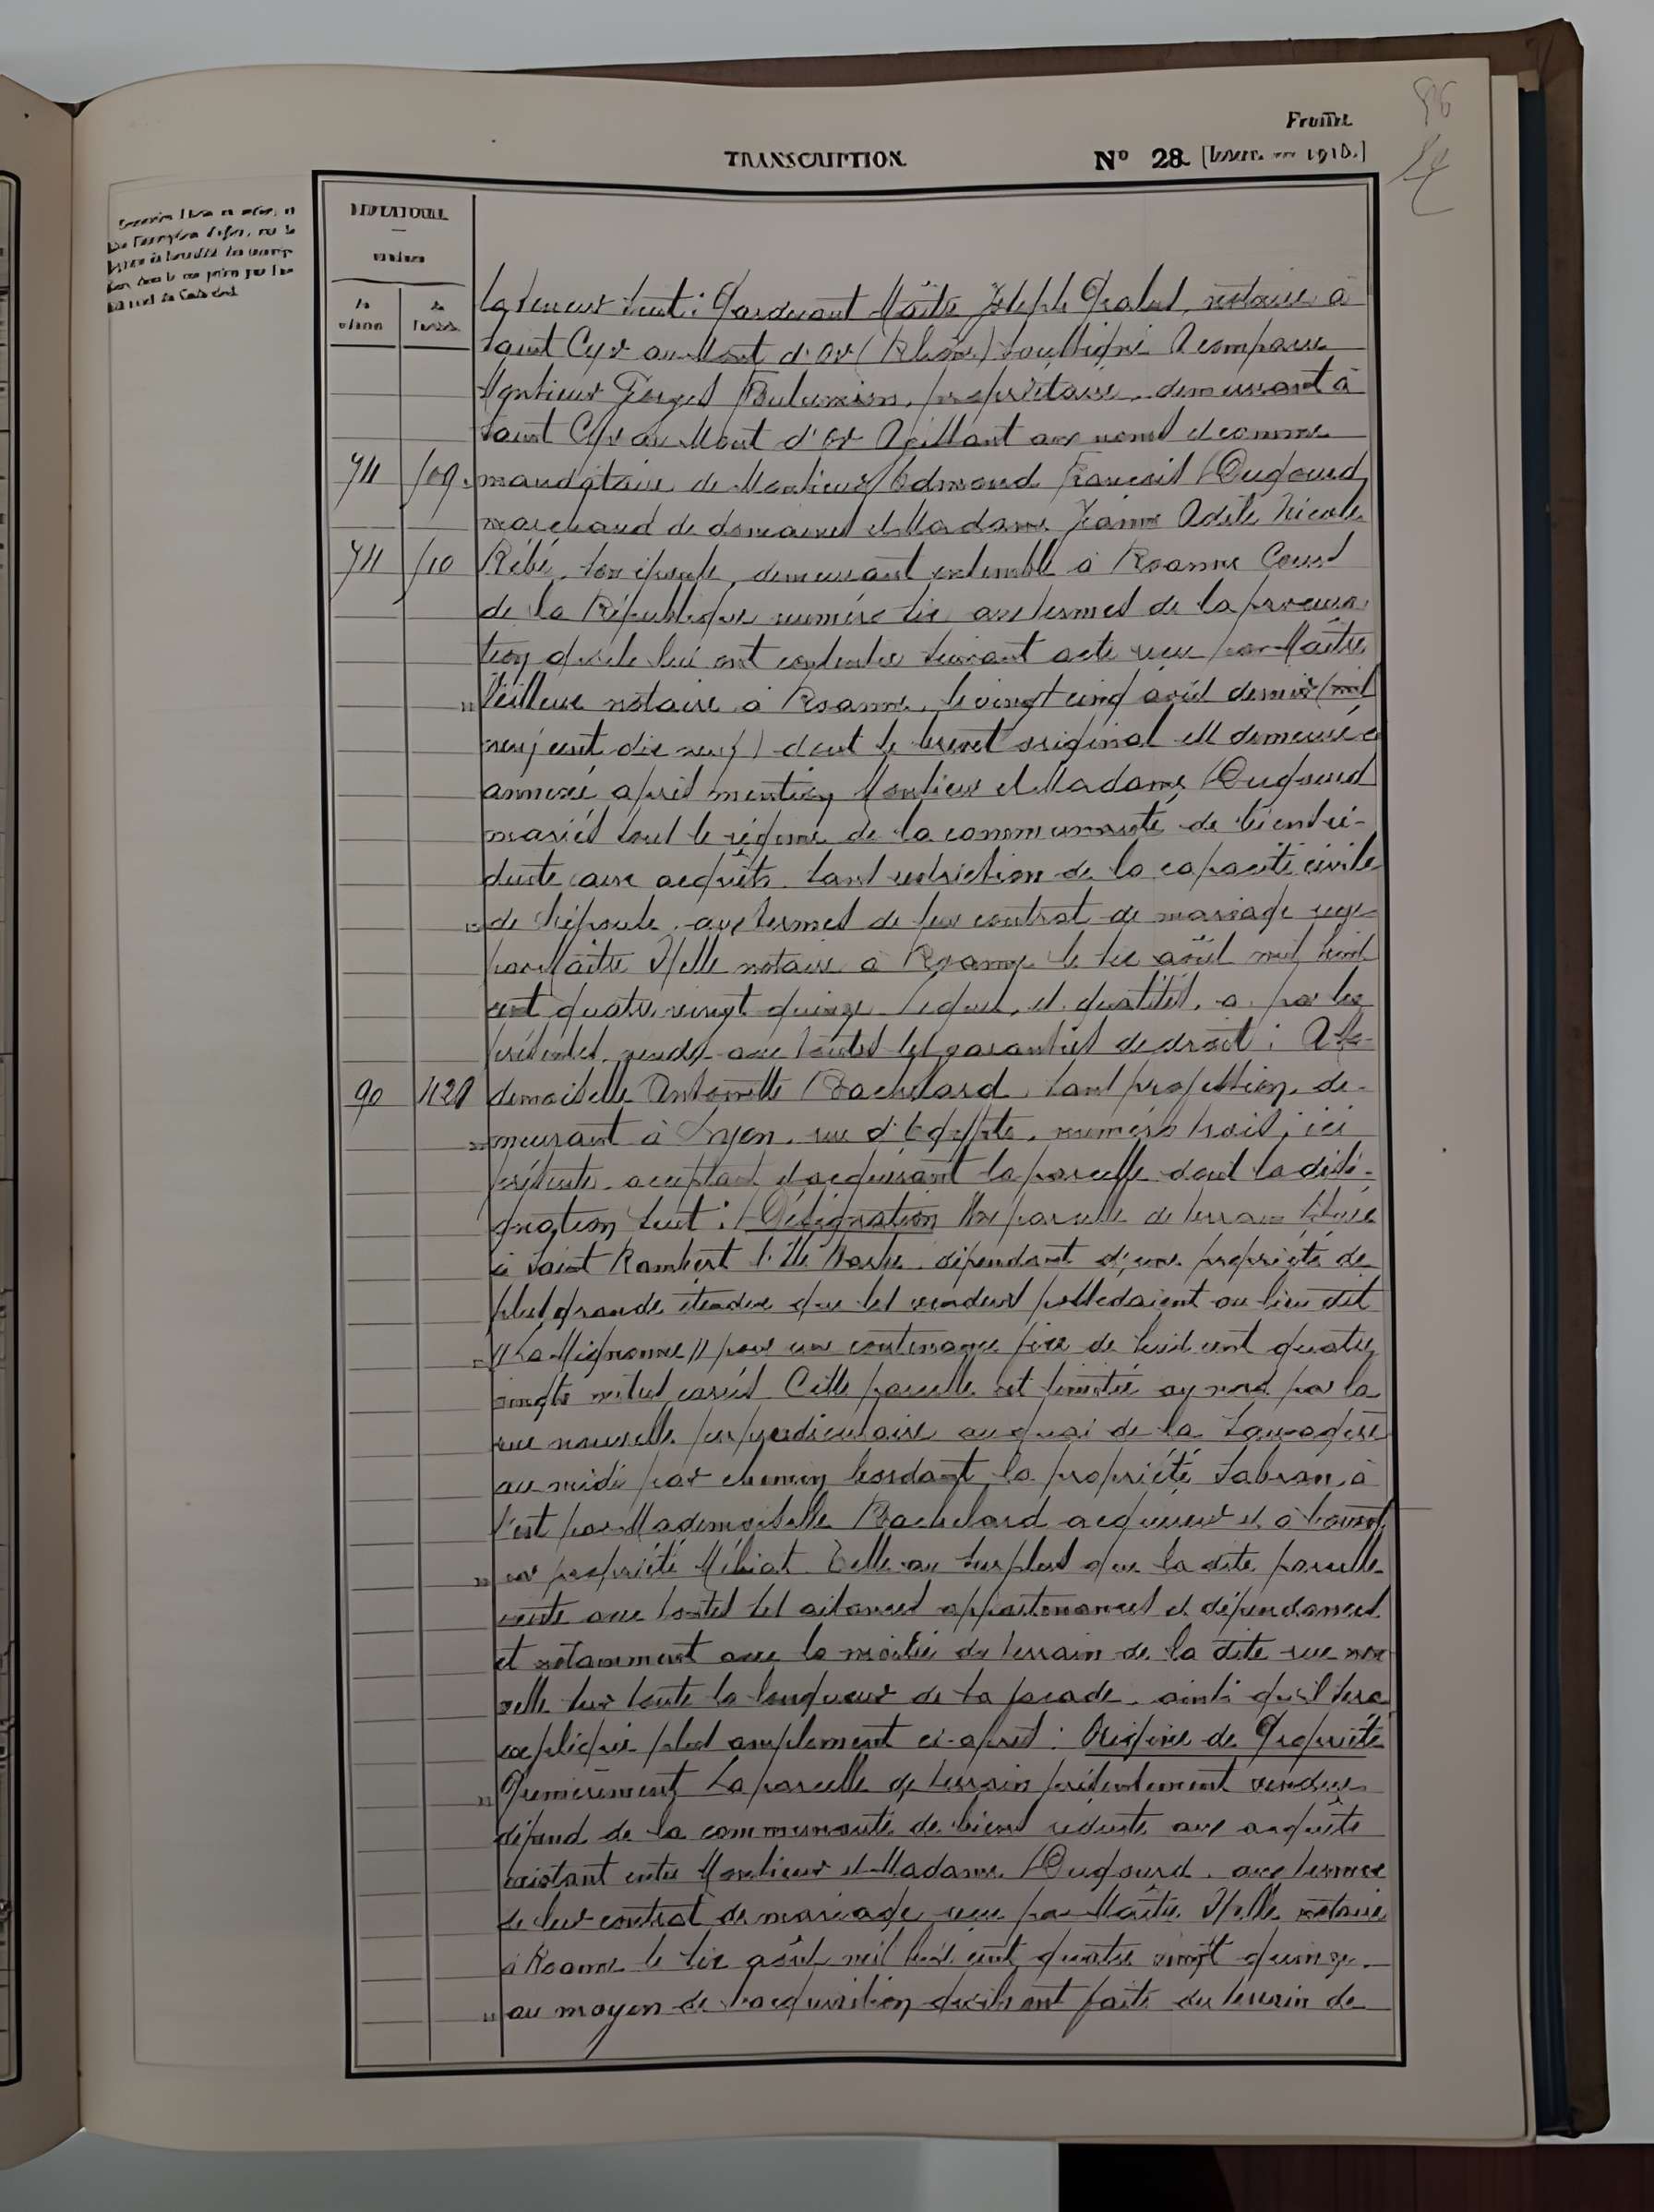 TRANSCRIPTION
N° 28
86
la teneur suit : Pardevant Maître Joseph notaire à
Saint Cyr au Mont d'Or (Rhône) soussigné A comparu
Monsieur Georges propriétaire, demeurant à
Saint Cyr au Mont d'Or Agissant aux noms et comme
711 109 mandataire de Monsieur Edmond François Dugourd
marchand de domaines et Madame Jeanne Adèle Nicole
711 110 Rébé, son épouse, demeurant ensemble à Roanne Cours
de la République numéro six aux termes de la procura
tion qu'ils lui ont conférée suivant acte reçu par Maître
notaire à Roanne, le vingt cinq août dernier (mil
neuf cent dix neuf) dont le brevet original est demeuré ci
annexé après mention Monsieur et Madame Dugourd
mariés sous le régime de la communauté de biens ré-
duite aux acquêts sans restriction de la capacité civile
de l'épouse, aux termes de leur contrat de mariage reçu
par Maître notaire à Roanne le six août mil huit
cent quatre vingt quinze Lequel, ès qualités, a par les
présentes vendu avec toutes les garanties de droit : A Ma-
90 demoiselle Antoinette Bachelard, sans profession, de-
meurant à Lyon, rue d'Egypte, numéro trois, ici
présente, acceptant et acquérant la parcelle dont la dési-
gnation suit : Désignation Une parcelle de terrain située
à Saint Rambert l'Ile Barbe dépendant d'une propriété de
plus grande étendue que les vendeurs possédaient au lieu dit
"La Mignonne" pour une contenance fixe de huit cent quatre
vingts mètres carrés Cette parcelle est limitée au nord par la
rue nouvelle perpendiculaire au quai de la Sauvagère
au midi par chemin bordant la propriété Sabran, à
l'est par Mademoiselle Bachelard acquéreur et à l'ouest
par propriété Telle au surplus que la dite parcelle
existe avec toutes ses aisances appartenances et dépendances
et notamment avec la moitié du terrain de la dite rue nou
velle sur toute la longueur de la façade, ainsi qu'il sera
expliqué plus amplement ci-après : Origine de Propriété
Premièrement La parcelle de terrain présentement vendue
dépend de la communauté de biens réduite aux acquêts
existant entre Monsieur et Madame Dugourd, aux termes
de leur contrat de mariage reçu par Maître notaire
à Roanne le six août mil huit cent quatre vingt quinze
au moyen de l'acquisition qu'ils ont faite du terrain de